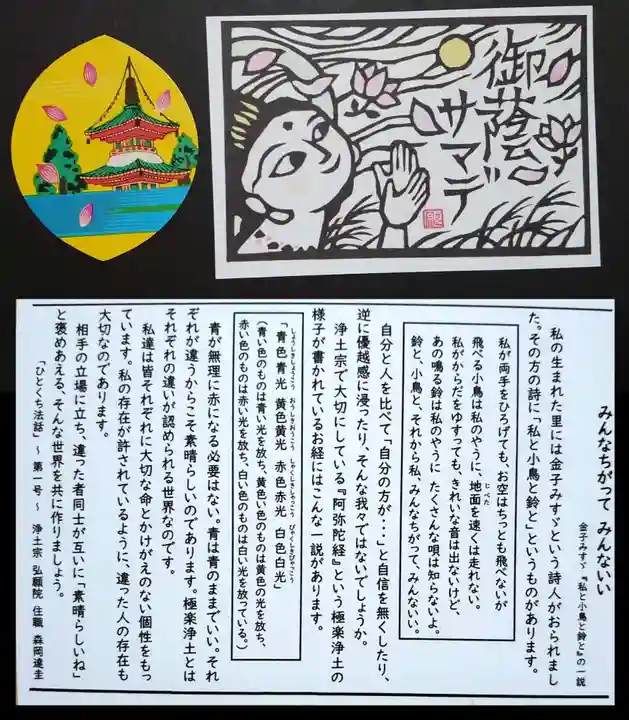 御蔭
サマデ
みんなちがって みんないい
金子みすゞ 『私と小鳥と鈴と』の一説
私の生まれた里には金子みすゞという詩人がおられまし
た。その方の詩に「私と小鳥と鈴と」というものがあります。
私が両手をひろげても、お空はちっとも飛べないが
飛べる小鳥は私のやうに、地面を速くは走れない。
じべた
私がからだをゆすっても、きれいな音は出ないけど、
あの鳴る鈴は私のやうに たくさんな唄は知らないよ。
鈴と、小鳥と、それから私、みんなちがって、みんないい。
自分と人を比べて「自分の方が・・」と自信を無くしたり、
逆に優越感に浸ったり、そんな我々ではないでしょうか。
浄土宗で大切にしている『阿弥陀経』という極楽浄土の
様子が書かれているお経にはこんな一説があります。
「青色青光 黄色黄光 赤色赤光 白色白光」
しょうしきしょうこう おうしきおうこう しゃくしきしゃっこう びゃくしきびゃっこう
(青い色のものは青い光を放ち、黄色い色のものは黄色の光を放ち、
赤い色のものは赤い光を放ち、白い色のものは白い光を放っている。)
青が無理に赤になる必要はない。青は青のままでいい。それ
ぞれが違うからこそ素晴らしいのであります。極楽浄土とは
それぞれの違いが認められる世界なのです。
私達は皆それぞれに大切な命とかけがえのない個性をもっ
ています。私の存在が許されているように、違った人の存在も
大切なのであります。
相手の立場に立ち、違った者同士が互いに「素晴らしいね」
と褒めあえる、そんな世界を共に作りましょう。
「ひとくち法話」 ~ 第一号 ~ 浄土宗 弘願院 住職 森岡達圭